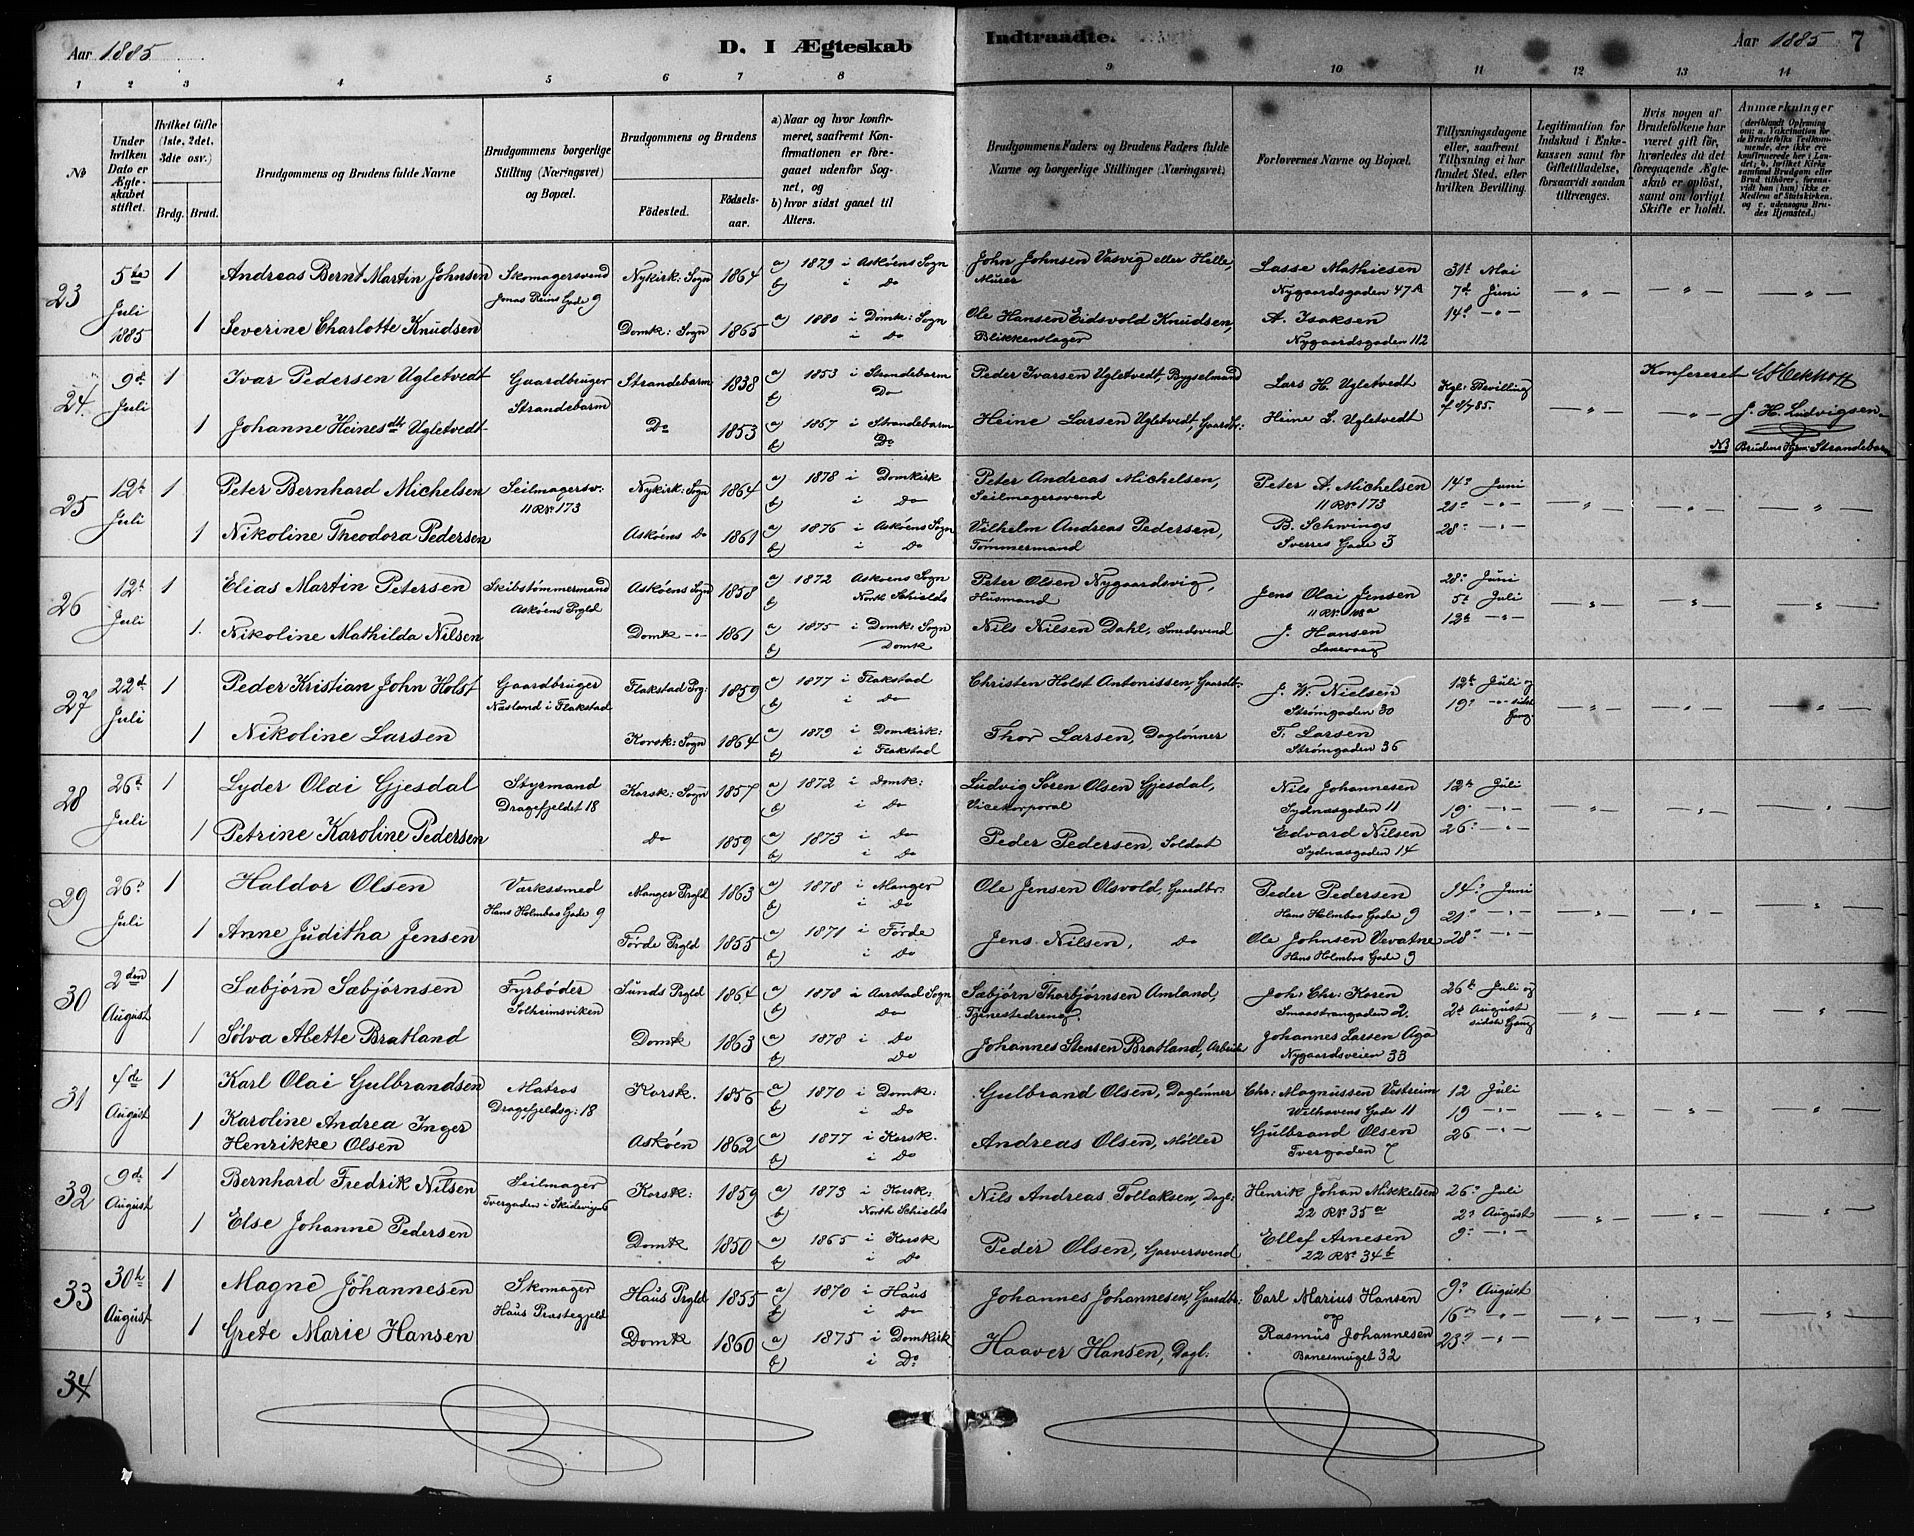 Aar 1885 D. I Ægteskab Indtraadte. Aar 1885 7
1 2 3 4 5 6 7 8 9 10 11 12 13 14
№
Under hvilken Dato er Ægteskabet stiftet.
Hvilket Gifte (1ste, 2det, 3die osv.)
Brdg. Brud.
Brudgommens og Brudens fulde Navne
Brudgommens borgerlige Stilling (Næringsvei) og Bopæl.
Brudgommens og Brudens
Fødested. Fødselsaar.
a) Naar og hvor konfirmeret, saafremt Konfirmationen er foregaaet udenfor Sognet, og
b) hvor sidst gaaet til Alters.
Brudgommens Faders og Brudens Faders fulde Navne og borgerlige Stillinger (Næringsvei)
Forlovernes Navne og Bopæl.
Tillysningsdagene eller, saafremt Tillysning ei har fundet Sted, efter hvilken Bevilling.
Legitimation for Indskud i Enkekassen samt for Giftetilladelse, forsaavidt saadan tiltrænges.
Hvis nogen af Brudefolkene har været gift før, hvorledes da det foregaaende Ægteskab er opløst, samt om lovligt Skifte er holdt.
Anmærkninger
(deriblandt Oplysning om: a. Vakcination for de Brudefolks Vedkommende, der ikke ere konfirmerede her i Landet; b. hvilket Kirkesamfund Brudgom eller Brud tilhører, forsaavidt han (hun) ikke er Medlem af Statskirken, og c. udensogns Brudes Hjemsted.)
23 5te Juli 1885 1 Andreas Bernt Martin Johnsen Skomagersvend Jonas Reins Gade 9 Nykirk: Sogn 1864 a) 1879 i Askøens Sogn b) i Do John Johnsen Vasvig eller Helle, Murer Lasse Mathiesen Nygaardsgaden 47A 31te Mai 7de Juni
1 Severine Charlotte Knudsen Domk: Sogn 1865 a) 1880 i Domk: Sogn i Do Ole Hansen Eidsvold Knudsen, Blikkenslager A. Isaksen Nygaardsgaden 112 14de -"-
24 9de Juli 1 Ivar Pedersen Ugletvedt Gaardbruger Strandebarm Strandebarm 1838 a) 1853 i Strandebarm b) Do Peder Ivarsen Ugletvedt, Bygselmand Lars H. Ugletvedt Kgl: Bevilling f 8/7 85. Konfereret
1 Johanne Heinesdtr Ugletvedt Do 1853 a) 1867 i Strandebarm b) Do Heine Larsen Ugletvedt, Gaardbr: Heine L. Ugletvedt J. H. Ludvigsen
NB Brudens Hjem: Strandebarm
25 12te Juli 1 Peter Bernhard Michelsen Seilmagersv: 11 R№ 173 Nykirk: Sogn 1864 a) 1878 i Domkirk b) i Do Peter Andreas Michelsen, Seilmagersvend Peter A. Michelsen 11 R№ 173 14de Juni 21de -"-
1 Nikoline Theodora Pedersen Askøens Do 1861 a) 1876 i Askøens Sogn b) i Do Vilhelm Andreas Pedersen, Tømmermand B. Schwings Sverres Gade 3 28de -"-
26 12te Juli 1 Elias Martin Petersen Skibstømmermand Askøens Prgld Askøens Sogn 1858 a) 1872 Askøens Sogn b) North Schields Peter Olsen Nygaardsvig, Husmand Jens Olai Jensen 28de Juni 5te Juli
1. Nikoline Mathilda Nilsen Domk -"- 1861 a) 1875 i Domk: Sogn b) Domk Nils Nilsen Dahl, Smedsvend J. Hansen Laxevaag 12te -"-
27 22de Juli 1 Peder Kristian John Holst Gaardbruger Næsland i Flakstad Flakstad Prg: 1859 a) 1877 i Flakstad b) i Do Christen Holst Antonissen, Gaardb: J. W. Nielsen Strømgaden 30 12te Juli og 19de -"- sidste Gang
1 Nikoline Larsen Korsk: Sogn 1864 a) 1879 i Domkirk: i Flakstad Thor Larsen, Daglønner T. Larsen Strømgaden 36
28 26de Juli 1 Lyder Olai Gjesdal Styrmand Dragefjeldet 18 Korsk: Sogn 1857 a) 1872 i Domk: b) i Do Ludvig Søren Olsen Gjesdal, Vicekorporal Nils Johannesen Sydnæsgaden 11 12te Juli 19 -"-
1 Petrine Karoline Pedersen Do 1859 a) 1873 i Do b) i Do Peder Pedersen, Soldat Edvard Nilsen Sydnæsgaden 14 26de -"-
29 26de Juli 1 Haldor Olsen Værkssmed Hans Holmbos Gade 9 Manger Prgld 1863 a) 1878 i Manger b) i Do Ole Jensen Olsvold, Gaardbr: Peder Pedersen Hans Holmbos Gade 9 14de Juni 21de -"-
1 Anne Juditha Jensen Førde Prgld 1855 a) 1871 i Førde b) i Do Jens Nilsen, Do Ole Johnsen Vevatne Hans Holmbos Gade 9 28de -"-
30 2den August 1 Sæbjørn Sæbjørnsen Fyrbøder Solheimsviken Sunds Prgld 1864 a) 1878 i Aarstad Sogn b) Do Sæbjørn Thorbjørnsen Amland, Tjenestedreng Joh: Chr: Koren Smaastrangaden 2. 26te Juli og 2de August sidste Gang
1 Sølva Alette Bratland Domk 1863 a) 1878 i Do b) Do Johannes Stensen Bratland, Arbeid: Johannes Larsen Aga Nygaardsveien 33
31 4de August 1 Karl Olai Gulbrandsen Matros Dragefjeldsg: 18 Korsk. 1856 a) 1870 i Domk: b) i Do Gulbrand Olsen, Daglønner Chr: Magnussen Vestreim Welhavens Gade 11 12 Juli 19 -"-
1 Karoline Andrea Inger Henrikke Olsen Askøen 1862 a) 1877 i Korsk. b) i Do Andreas Olsen, Møller Gulbrand Olsen Tvergaden 7 26 -"-
32 9de August 1 Bernhard Fredrik Nilsen Seilmager Tvergaden i Skidevigen 6 Korsk: 1859 a) 1873 i Korsk: b) North Schields Nils Andreas Tollaksen, Dagl: Henrik Johan Mikkelsen 22 R№ 35a 26de Juli 2de August
1 Else Johanne Pedersen Domk 1850 a) 1865 i Korsk b) i Do Peder Olsen, Garversvend Ellef Arnesen 22 R№ 34b 9de -"-
33 30te August 1 Magne Johannesen Skomager Haus Præstegjeld Haus Prgld 1855 a) 1870 i Haus b) i Do Johannes Johannesen, Gaardbr: Carl Marius Hansen og 9de August 16de -"-
1 Grete Marie Hansen Domk 1860 a) 1875 i Domkirk b) i Do Haaver Hansen, Dagl: Rasmus Johannesen Banesmuget 32 23de -"-
34